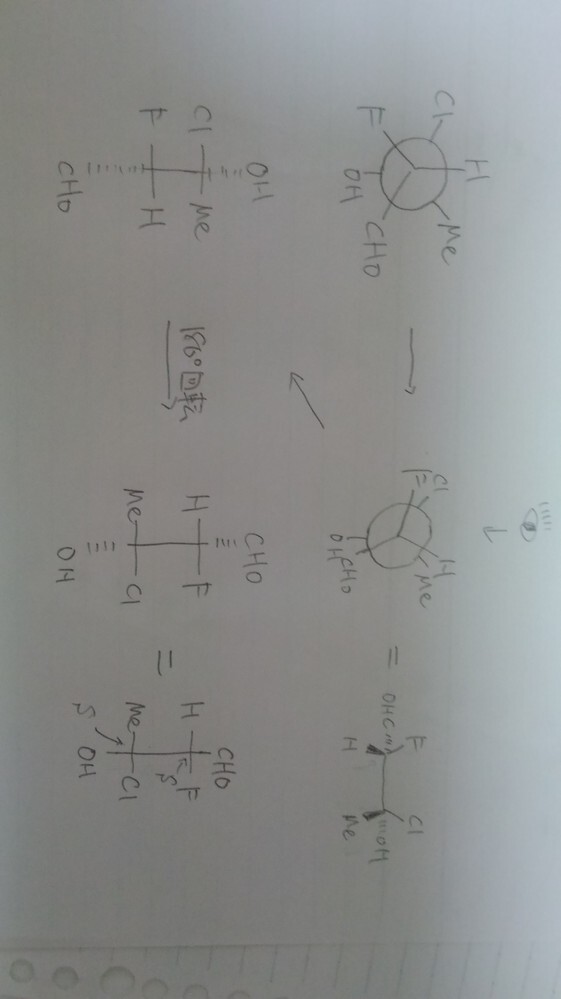 H
Cl
Me
F
OH
CHO
Cl
F
H
Me
OH CHO
=
F
Cl
OHC
OH
H
Me
OH
Cl Me
F H
CHO
180°回転
CHO
H F
Me Cl
OH
=
CHO
H F
S
Me Cl
S
OH